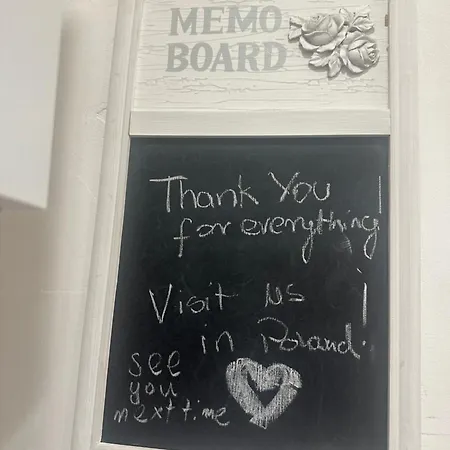 MEMO
BOARD
Thank You
for everything!
Visit us
in Poland!
see
you
next time